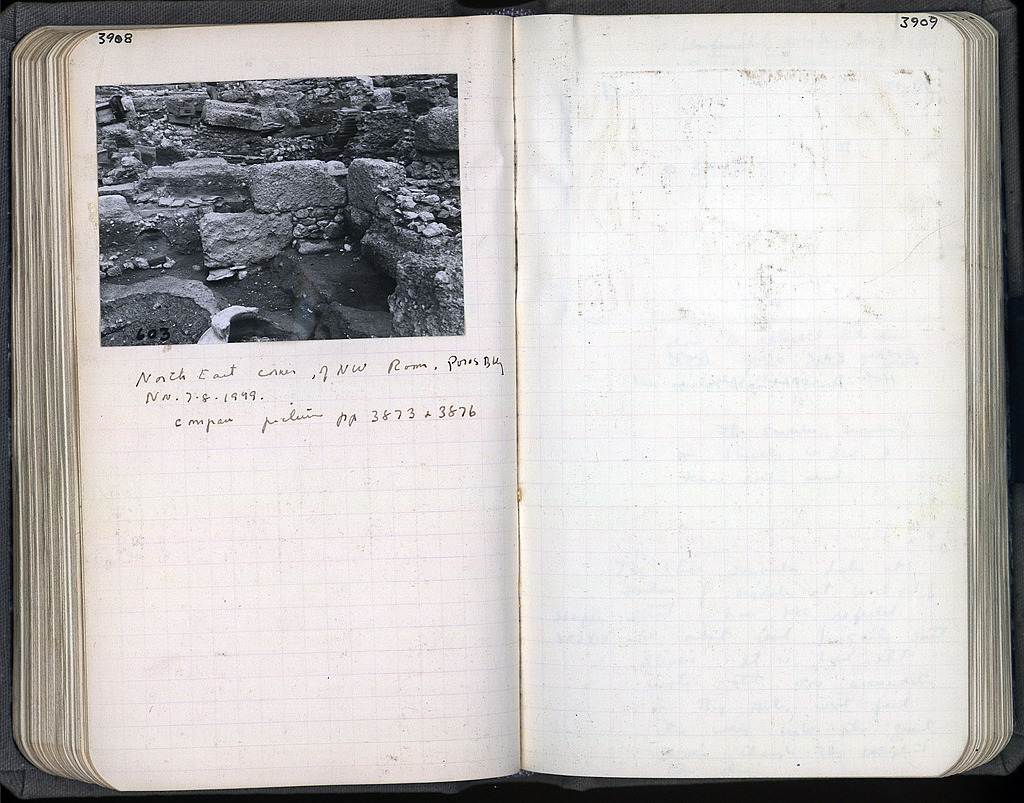 3908
3909
603
North East corner of NW Room, Poros Bldg
Nn. 7.8.1949.
compare picture pp 3873 & 3876